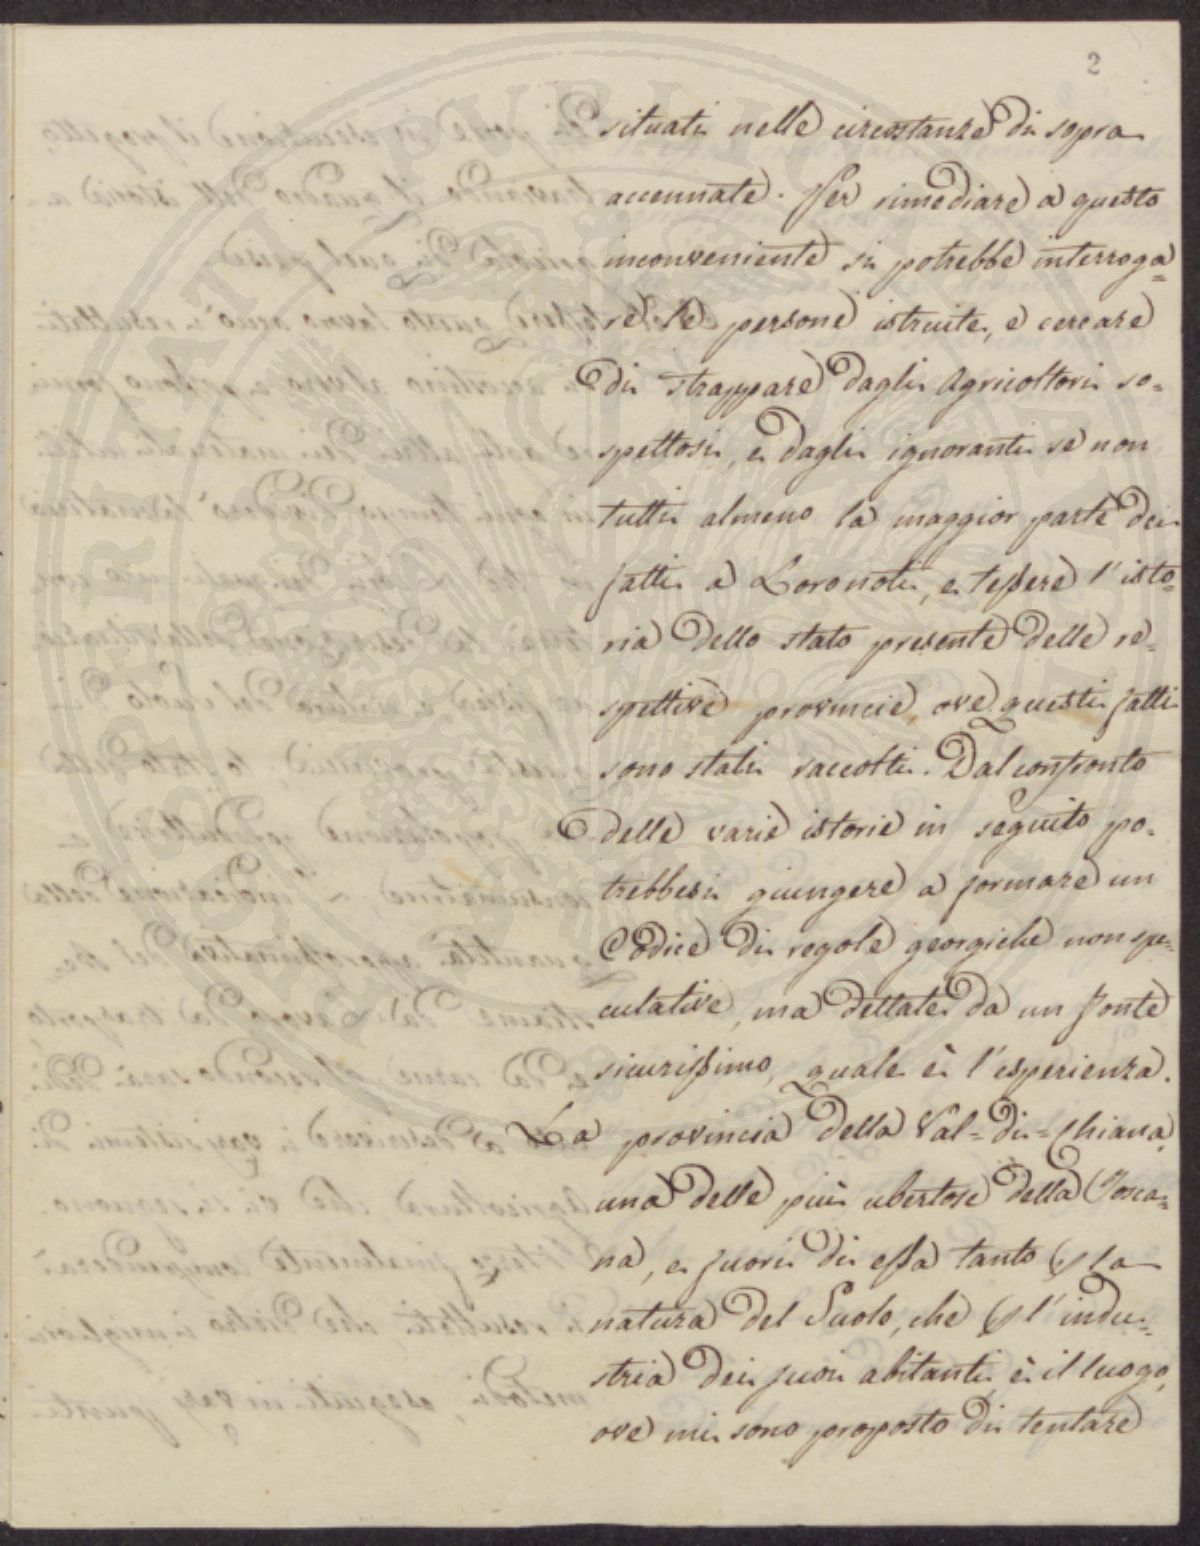 2
situati nelle circostanze di sopra
accennate. Per rimediare a questo
inconveniente si potrebbe interroga=
re le persone istruite, e cercare
di strappare dagli Agricoltori so=
spettosi, e dagli ignoranti se non
tutti almeno la maggior parte dei
fatti a Loro noti, e tessere l'isto=
ria dello stato presente delle re=
spettive provincie, ove questi fatti
sono stati raccolti. Dal confronto
delle varie istorie in seguito po=
trebbesi giungere a formare un
Codice di regole georgiche non spe=
culative, ma dettate da un fonte
sicurissimo, quale è l'esperienza.
La provincia della Val=di=Chiana,
una delle più ubertose della Tosca=
na, e fuori di essa tanto p la
natura del Suolo, che p l'indu=
stria dei suoi abitanti, è il luogo,
ove mi sono proposto di tentare